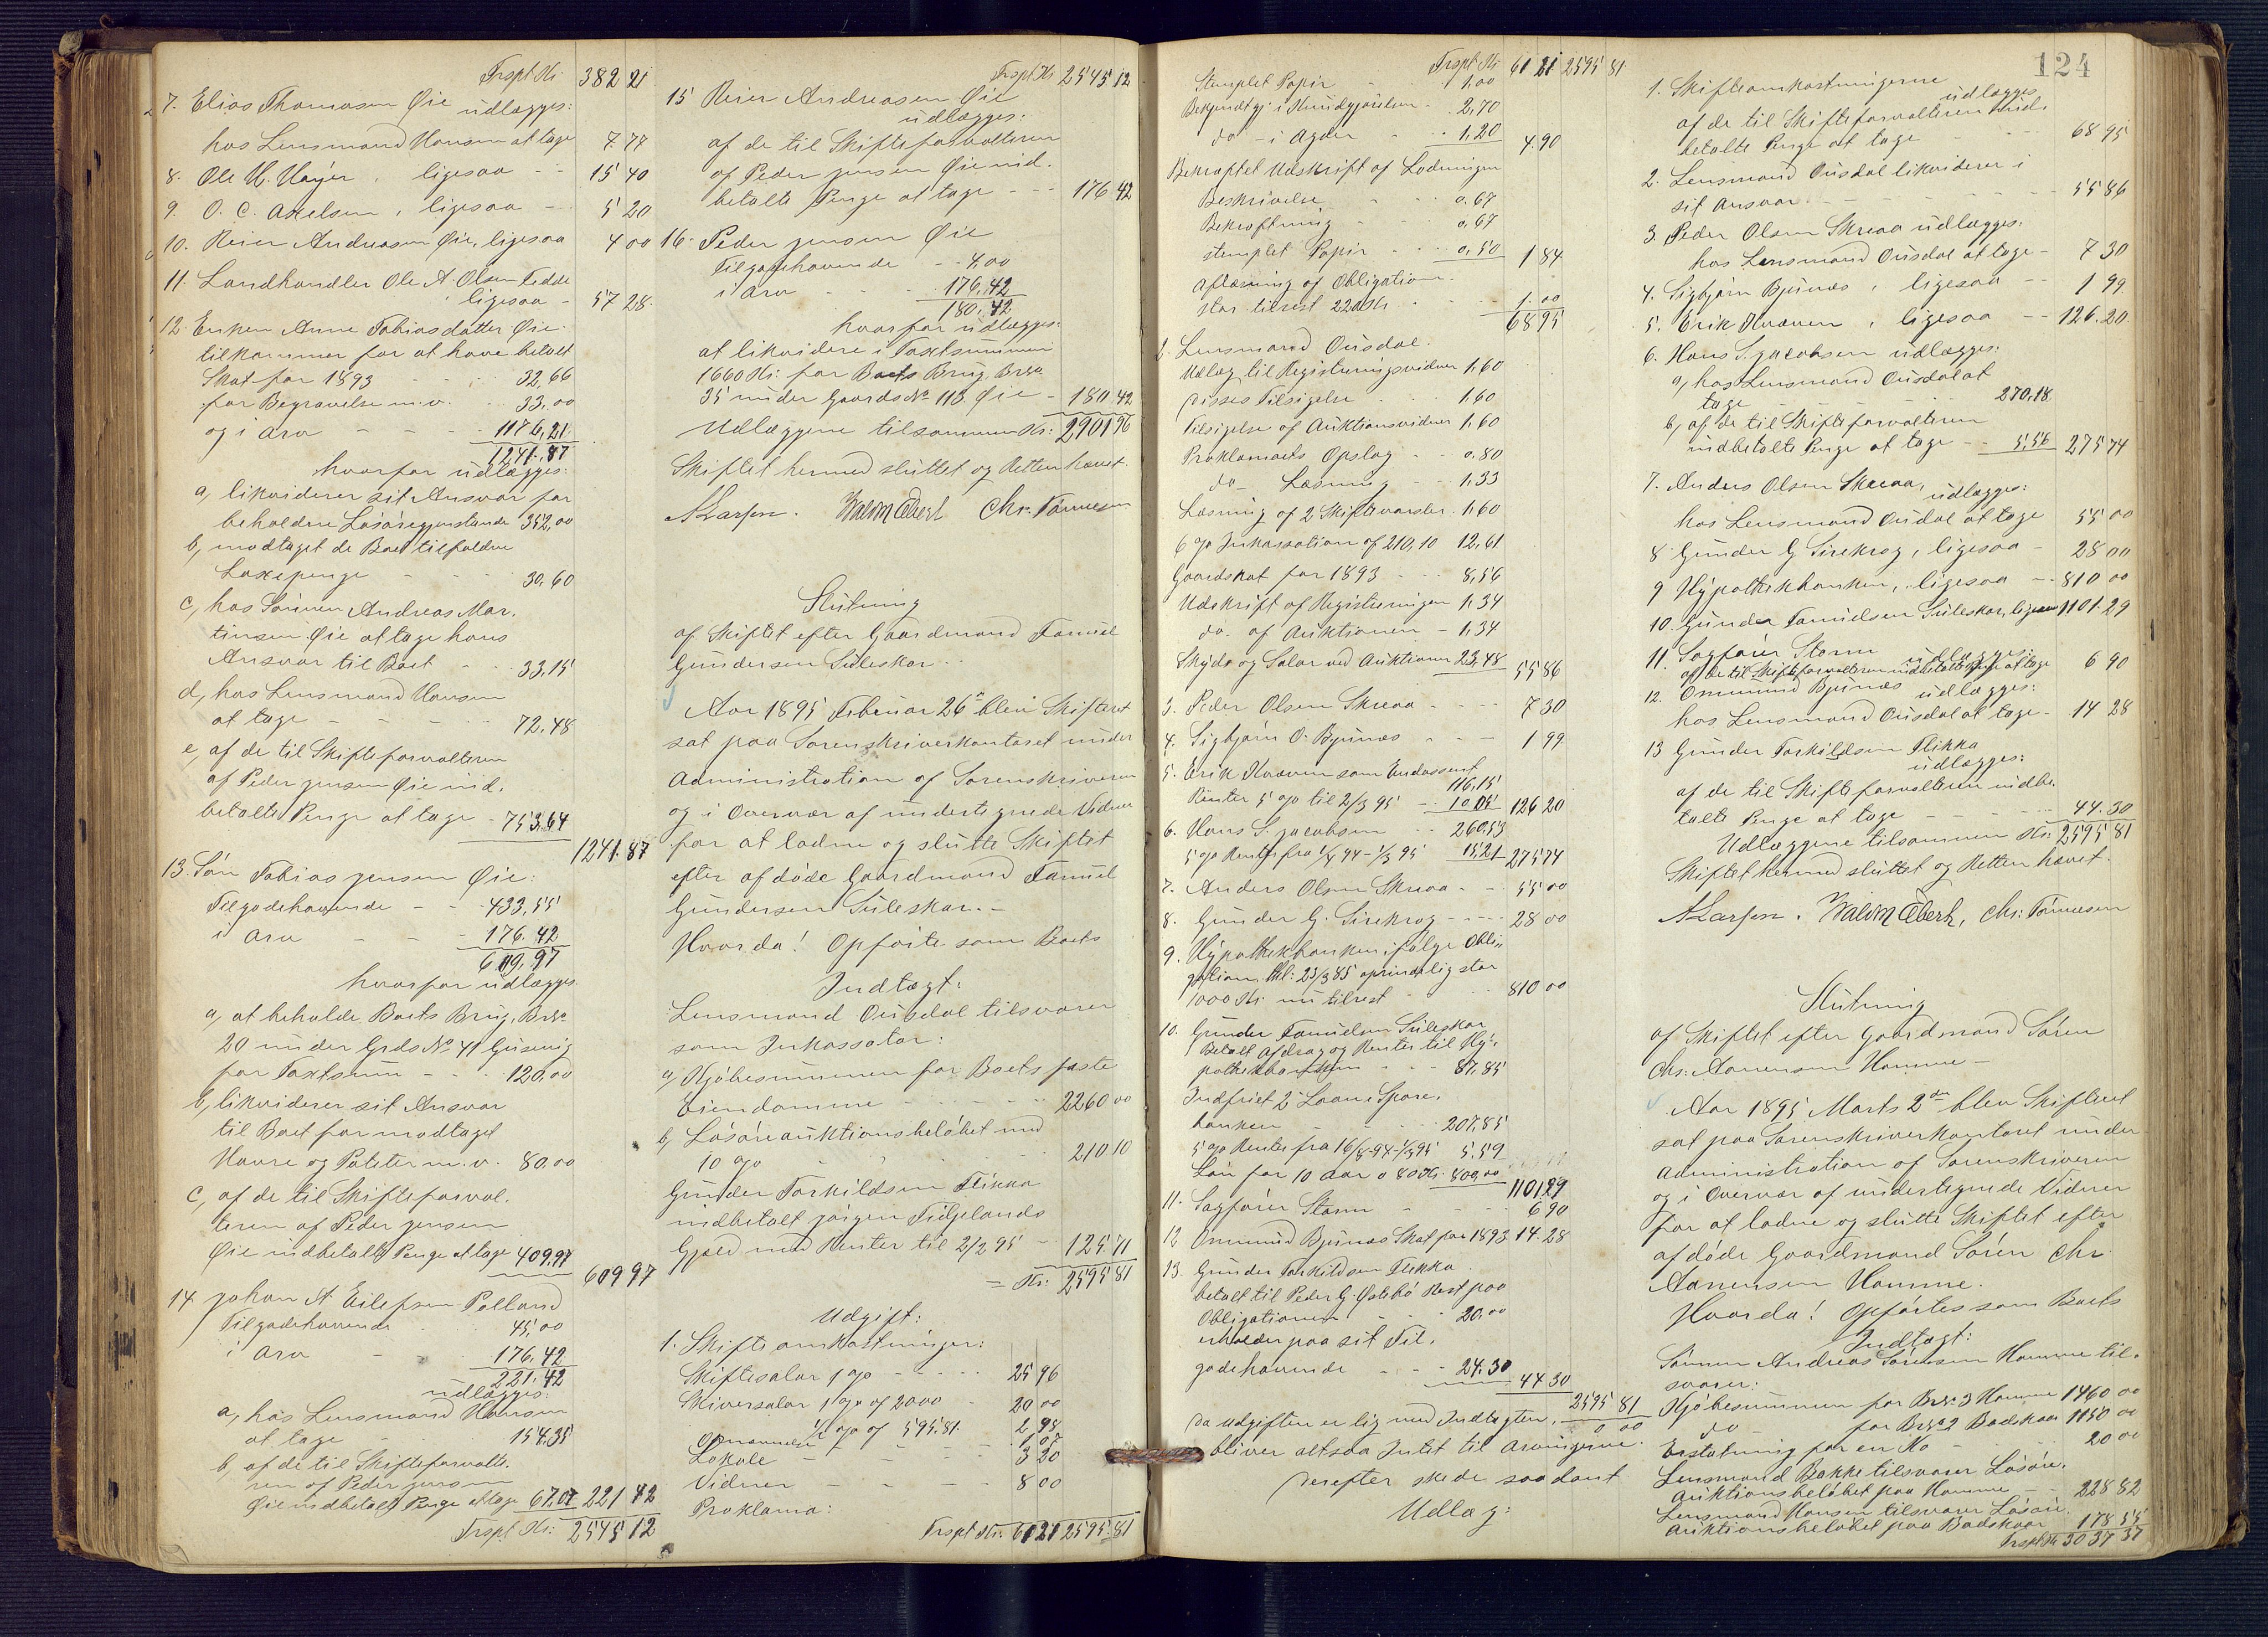 Trspt Kr. 382 21
7. Elias Thomasen Øie udlægges:
hos Lensmand Hansen at tage 7 77
8. Ole H. Høyer, ligesaa - - 15 40
9. O. C. Axelsen, ligesaa - 5 20
10. Reier Andreasen Øie, ligesaa 4 00
11. Landhandler Ole A. Olsen Fedde
ligesaa - 57 28.
12. Enken Anne Tobiasdatter Øie
tilkommer for at have betalt
Skat for 1893 - - 32,66
for Begravelse m.v. - 33,00
og i Arv - - - 1176,21
1241.87
hvorfor udlægges:
a, likviderer sit Ansvar for
beholdne Løsøregjenstande 352,00
b, modtaget de Boet tilfaldne
Laxepenge - - - 30,60
c, hos Sønnen Andreas Mar-
tinsen Øie at tage hans
Ansvar til Boet - - 33,15
d, hos Lensmand Hansen
at tage - - - - 72,48
e, af de til Skifteforvalteren
af Peder Jensen Øie ind-
betalte Penge at tage - 753,64
1241.87
13. Søn Tobias Jensen Øie:
Tilgodehavende - - 433,55
i Arv - - - 176.42
609,97
hvorfor udlægges
a, at beholde Boets Brug, Brsno
20 under Grds No 41 Gusevig
for Taxtsum - - - 120,00
b, likviderer sit Ansvar
til Boet for modtaget
Havre og Poteter m.v. 80.00
c, af de til Skifteforval-
teren af Peder Jensen
Øie indbetalte Penge at tage 409.97
609 97
14. Johan A. Eilefsen Polland
Tilgodehavende 45,00
i Arv - 176.42
221,42
udlægges:
a, hos Lensmand Hansen
at tage - 154.35
b, af de til Skifteforvalte-
ren af Peder Jensen
Øie indbetalte Penge at tage 67.07 221 42
Trspt Kr: 2545 12
Trspt Kr 2545 12
15 Reier Andreasen Øie
udlægges:
af de til Skifteforvalteren
af Peder Jensen Øie ind-
betalte Penge at tage - - - 176 42
16. Peder Jensen Øie
Tilgodehavende - - 4,00
i Arv - - - 176,42
180,42
hvorfor udlægges:
at likvidere i Taxtsummen
1660 Kr: for Boets Brug, Brsno
35 under Gaards No 113 Øie - 180.42
Udlæggene tilsammen Kr: 2901 96
Skiftet hermed sluttet og Retten hævet.
A Larsen. Waldm Ebert Chr. Tønnesen
Slutning
af Skiftet efter Gaardmand Samuel
Gundersen Suleskar.
Aar 1895 Februar 26de blev Skifteret
sat paa Sorenskriverkontoret under
Administration af Sorenskriveren
og i Overvær af undertegnede Vidner
for at lodne og slutte Skiftet
efter afdøde Gaardmand Samuel
Gundersen Suleskar.-
Hvorda! Opførte som Boets
Indtægt:
Lensmand Ousdal tilsvarer
som Inkassator:
a, Kjøbesummen for Boets faste
Eiendomme - - - - - 2260 00
b, Løsøreauktionsbeløbet med
10 % - - - - - 210 10
Gunder Torkildsen Flikka
indbetalt Jørgen Tidjelands
Gjæld med Renter til 2/3 95 - 125.71
= Kr: 2595 81
Udgift:
1. Skifteomkostninger:
Skiftesalar 1 % - - - - - 25 96
Skriversalar 1 % af 2000 - 20 00
1/2 % af 595.81. 2,98
Opnævnelse - - - 1,07
Lokale - - - - 3 20
Vidner - - - - 8 00
Proklama:
Trspt Kr: 61 21 2595.81
124
Trspt Kr 61 21 2595 81
Stemplet Papir - - 1.00
Bekjendtgj: i Kundgjørelsen - 2,70
do - i Agder - - 1,20 4.90
Bekræftet Udskrift af Lodningen
Beskrivelse - - 0,67
Bekræftning - - 0,67
stemplet Papir - - 0,50 1 84
Aflæsning af Obligation
stor tilrest 220 Kr - - - 1.00
68 95
2. Lensmand Ousdal.
Udlæg til Registreringsvidner 1,60
disses Tilsigelse - - 1,60
Tilsigelse af Auktionsvidner 1,60
Proklamaets Opslag - - 0,80
do - Læsning - - 1,33
Læsning af 2 Skiftevarsler 1,60
6 % Inkassation af 210,10 12,61
Gaardskat for 1893 - - 8,56
Udskrift af Registreringen 1,34
do. af Auktionen - 1,34
Skyds og Salar ved Auktionen 23,48 55 86
3. Peder Olsen Skreaa - - - - 7 30
4. Sigbjørn O. Bjunæs - - - 1 99
5. Erik Kvæven som Endossent
116,15
Renter 5 % til 2/3 95 - - 10.05 126 20
6. Hans S. Jacobsen - - 260.53
5 % Renter fra 1/1 94 - 1/3 95 15.21 275 74
7. Anders Olsen Skreaa - - 55 00
8. Gunder G. Sirekrog - - - - 28 00
9. Hypothekbanken ifølge Obli-
gation thl: 23/3 85 oprindelig stor
1000 Kr. nu tilrest - - - 810 00
10. Gunder Samuelsen Suleskar
Betalt Afdrag og Renter til Hy-
pothekbanken - - - 87.85
Indfriet 2 Laan i Spare-
banken - - - 207,85
5 % Renter fra 16/8 94 - 1/3 95 5.59
Løn for 10 Aar a 80 Kr. 800,00
1101,29
11. Sagfører Storm - - - - 6 90
12 Ommund Bjunæs Skat for 1893 14.28
13. Gunder Torkildsen Flikka.
betalt til Peder G. Østebø Rest paa
Obligationen - - 20,00
erholder paa sit Til-
godehavende - - - 24.30
44 30
2595 81
da Udgiften er lig med Indtægten, 0 00
bliver altsaa Intet til Arvingerne.
derefter skede saadant
Udlæg:
1. Skifteomkostningerne
udlægges
af de til Skifteforvalteren ind-
betalte Penge at tage - - - 68 95
2. Lensmand Ousdal likviderer i
sit Ansvar - - - - - 55 86
3. Peder Olsen Skreaa udlægges:
hos Lensmand Ousdal at tage - 7 30
4. Sigbjørn Bjunæs, ligesaa - - 1 99
5. Erik Kvæven, ligesaa - - 126.20
6. Hans S. Jacobsen udlægges:
a, hos Lensmand Ousdal at
tage - - - - - 270,18
b, af de til Skifteforvalteren
indbetalte Penge at tage - - 5,56 275 74
7. Anders Olsen Skreaa, udlægges:
hos Lensmand Ousdal at tage 55 00
8 Gunder G Sirekrog, ligesaa - 28 00
9 Hypothekbanken, ligesaa - - 810 00
10. Gunder Samuelsen Suleskar, ligesaa 1101.29
11. Sagfører Storm udlægges:
af de til Skifteforvalteren indbetalte Penge at tage 6 90
12. Ommund Bjunæs udlægges:
hos Lensmand Ousdal at tage - 14 28
13 Gunder Torkildsen Flikka
udlægges:
af de til Skifteforvalteren indbe-
talte Penge at tage - - - 44.30
Udlæggene tilsammen Kr: 2595 81
Skiftet hermed sluttet og Retten hævet.
A Larsen. Waldm Ebert, Chr: Tønnesen
Slutning
af Skiftet efter Gaardmand Søren
Chr: Aanensen Homme -
Aar 1895 Marts 2den blev Skifteret
sat paa Sorenskriverkontoret under
Administration af Sorenskriveren
og i Overvær af undertegnede Vidner
for at lodne og slutte Skiftet efter
afdøde Gaardmand Søren Chr.
Aanensen Homme.
Hvorda! Opførtes som Boets
Indtægt:
Sønnen Andreas Sørensen Homme til-
svarer:
Kjøbesummen for Brsno 3 Homme 1460 00
do for Brsno 2 Badskaar 1150 00
Erstatning for en Ko - - 20 00
Lensmand Bakke tilsvarer Løsøre-
auktionsbeløbet paa Homme - - 228 82
Lensmand Hansen tilsvarer Løsøre-
auktionsbeløbet paa Badskaar 178 55
Trspt Kr 3037 37